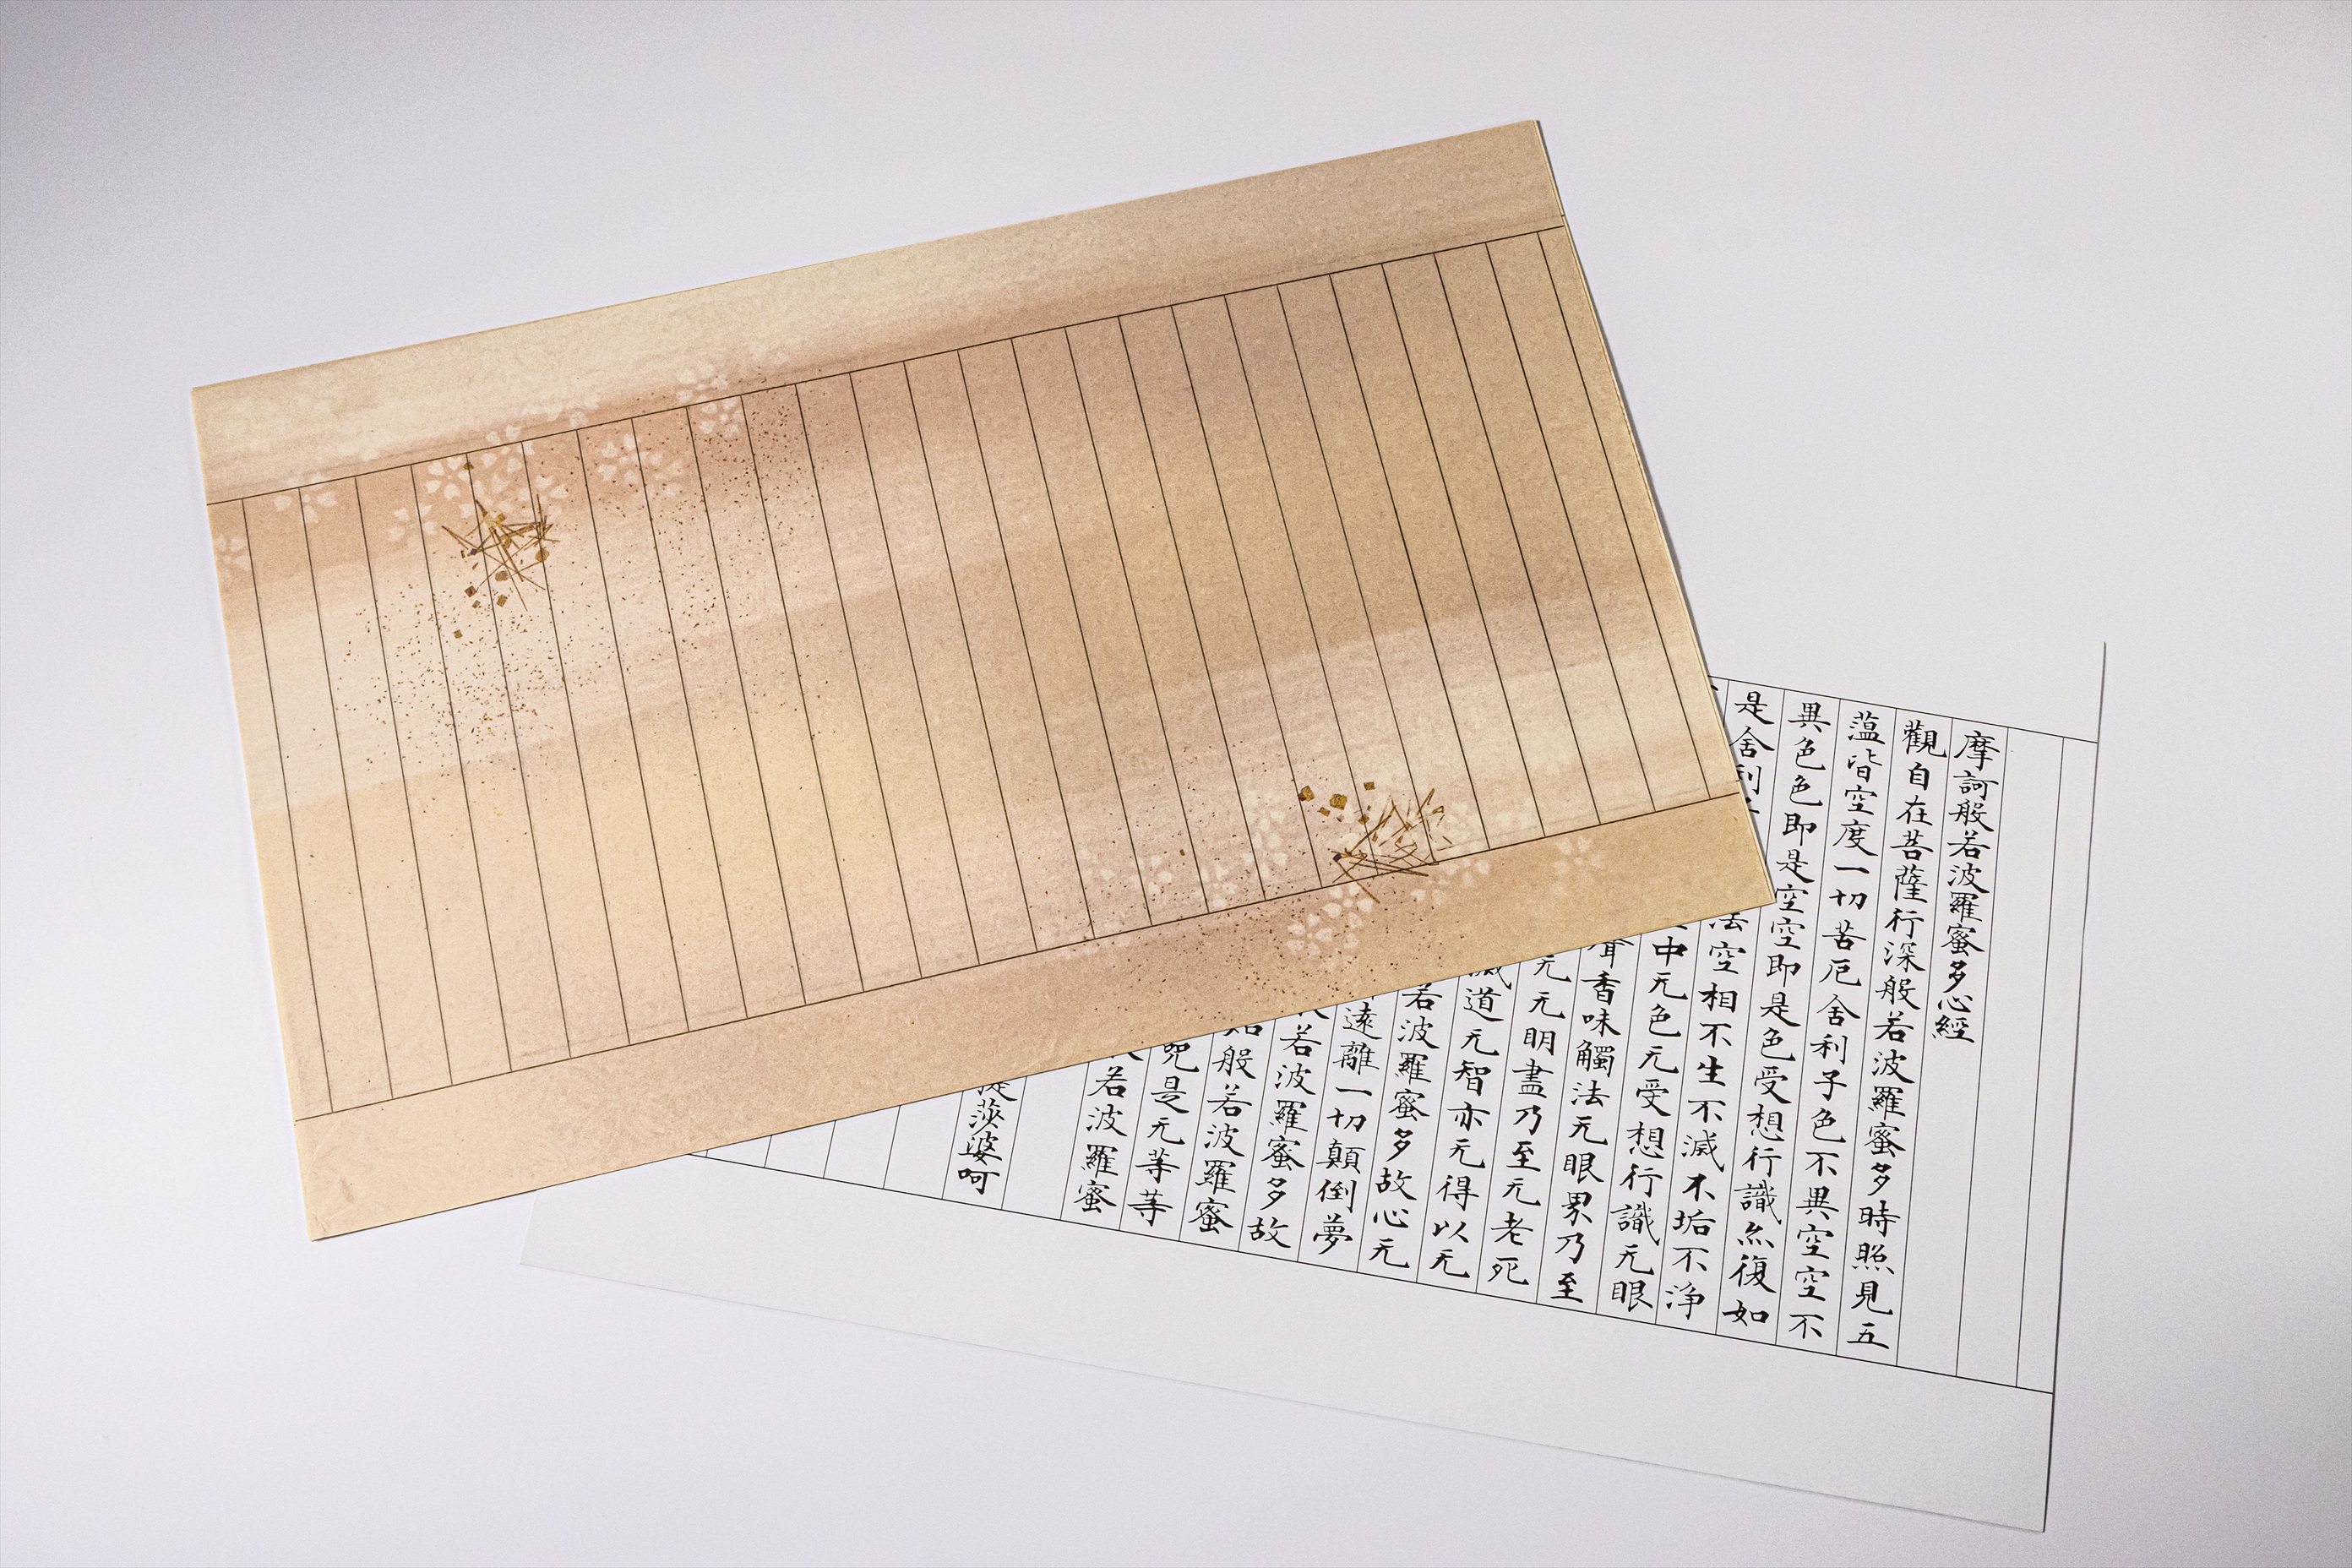 摩訶般若波羅蜜多心經
觀自在菩薩行深般若波羅蜜多時照見五
薀皆空度一切苦厄舍利子色不異空空不
異色色即是空空即是色受想行識亦復如
是舍利
法空相不生不滅不垢不淨
中无色无受想行識无眼
聲香味觸法无眼界乃至
无无明盡乃至无老死
滅道无智亦无得以无
若波羅蜜多故心无
遠離一切顛倒夢
若波羅蜜多故
知般若波羅蜜
呪是无等等
若波羅蜜
提莎婆呵